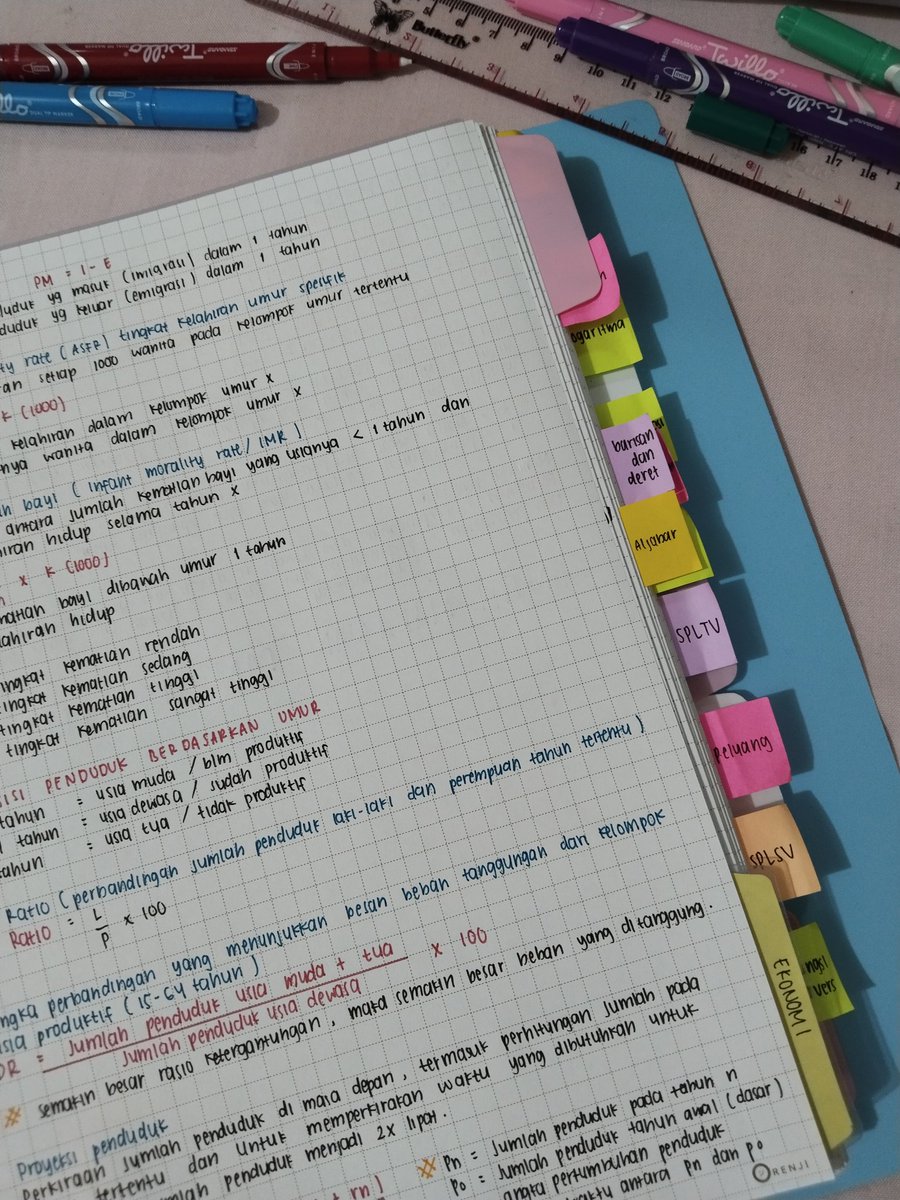 Butterfly
Twillo
PM = I - E
duduk yg masuk (imigrasi) dalam 1 tahun
duduk yg keluar (emigrasi) dalam 1 tahun
ty rate (ASFR) tingkat kelahiran umur spesifik
an setiap 1000 wanita pada kelompok umur tertentu
K (1000)
kelahiran dalam kelompok umur x
nya wanita dalam kelompok umur x
bayi (infant morality rate / IMR)
antara jumlah kematian bayi yang usianya < 1 tahun dan
hiran hidup selama tahun x
x K (1000)
matian bayi dibawah umur 1 tahun
lahiran hidup
tingkat kematian rendah
tingkat kematian sedang
tingkat kematian tinggi
tingkat kematian sangat tinggi
ISI PENDUDUK BERDASARKAN UMUR
tahun = usia muda / blm produktif
tahun = usia dewasa / sudah produktif
tahun = usia tua / tidak produktif
Ratio (perbandingan jumlah penduduk laki-laki dan perempuan tahun tertentu)
Ratio = L/P x 100
ngka perbandingan yang menunjukkan besan beban tanggungan dari kelompok
usia produktif (15-64 tahun)
DR = Jumlah penduduk usia muda + tua / Jumlah penduduk usia dewasa x 100
semakin besar rasio ketergantungan, maka semakin besar beban yang ditanggung.
Proyeksi penduduk
Perkiraan jumlah penduduk di masa depan, termasuk perhitungan jumlah pada
tertentu dan untuk memperkirakan waktu yang dibutuhkan untuk
mlah penduduk menjadi 2x lipat.
Pn = jumlah penduduk pada tahun n
Po = jumlah penduduk tahun awal (dasar)
angka pertumbuhan penduduk
waktu antara pn dan po
rn)
ORENJI
ogaritma
barisan
dan
deret
Aljabar
SPLTV
Peluang
SPLSV
ngsi
vers
EKONOMI